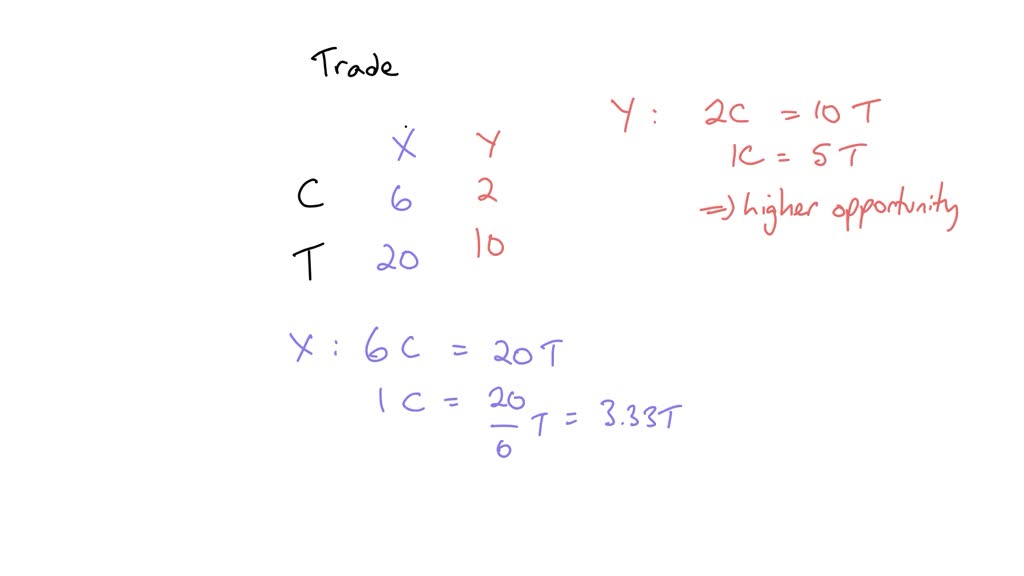 Trade
X Y
C 6 2
T 20 10
Y : 2C = 10 T
1C = 5 T
=> higher opportunity
X : 6 C = 20 T
1 C = 20/6 T = 3.33T